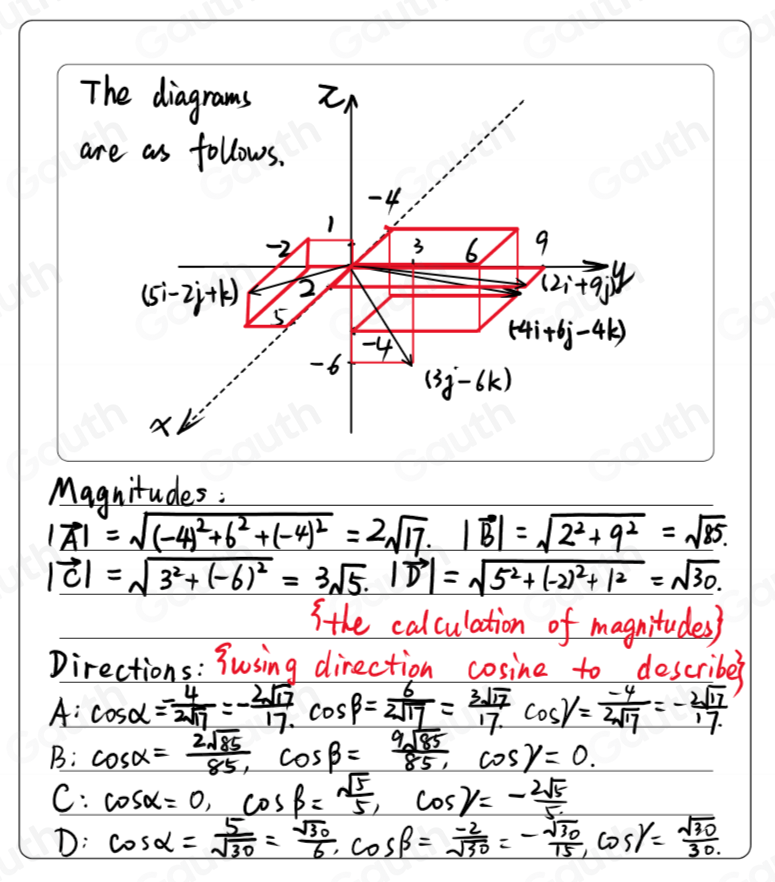 The diagrams
are as follows.
z
-4
1
-2
3
6
9
y
(5i-2j+k)
2
(2i+9j)
5
(-4i+6j-4k)
-4
-6
(3j-6k)
x
Magnitudes:
|A⃗| = √((-4)²+6²+(-4)²) = 2√17. |B⃗| = √(2²+9²) = √85.
|C⃗| = √(3²+(-6)²) = 3√5. |D⃗| = √(5²+(-2)²+1²) = √30.
{the calculation of magnitudes}
Directions: {using direction cosine to describe}
A: cosα = -4/2√17 = -2√17/17. cosβ = 6/2√17 = 3√17/17. cosγ = -4/2√17 = -2√17/17.
B: cosα = 2√85/85, cosβ = 9√85/85, cosγ = 0.
C: cosα = 0, cosβ = √5/5, cosγ = -2√5/5.
D: cosα = 5/√30 = √30/6, cosβ = -2/√30 = -√30/15, cosγ = √30/30.